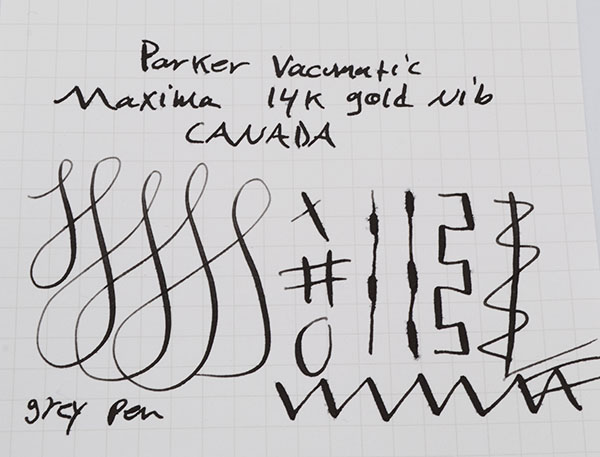 Parker Vacumatic
Maxima 14K gold nib
CANADA
grey pen